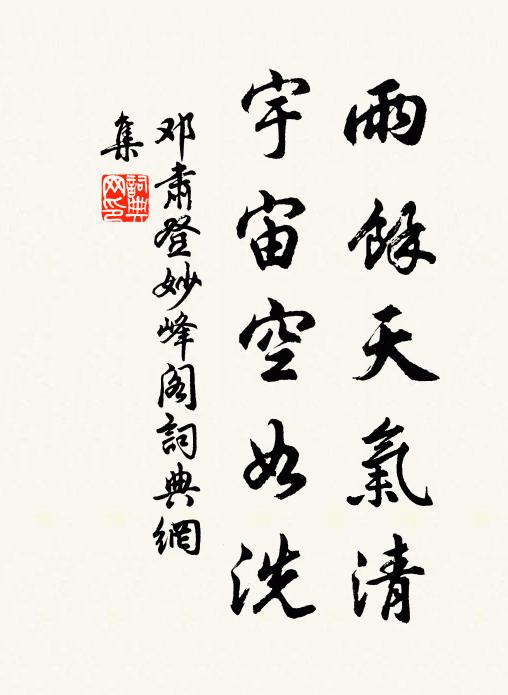 雨餘天氣清
宇宙空如洗
邓肅登妙峰阁詞典網
集
詞典网印